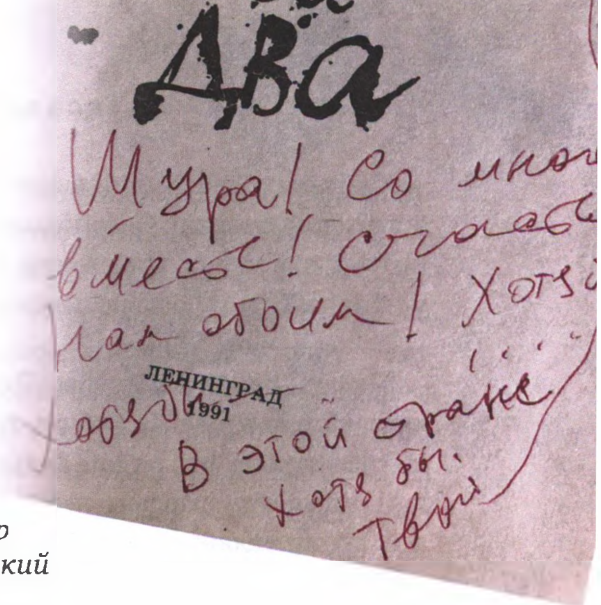 Два
Шура! Со мно
вместе! Счасть
нам обоим! Хотя
ЛЕНИНГРАД
1991
Хотя бы
В этой стране
хотя бы.
Твой
р
кий